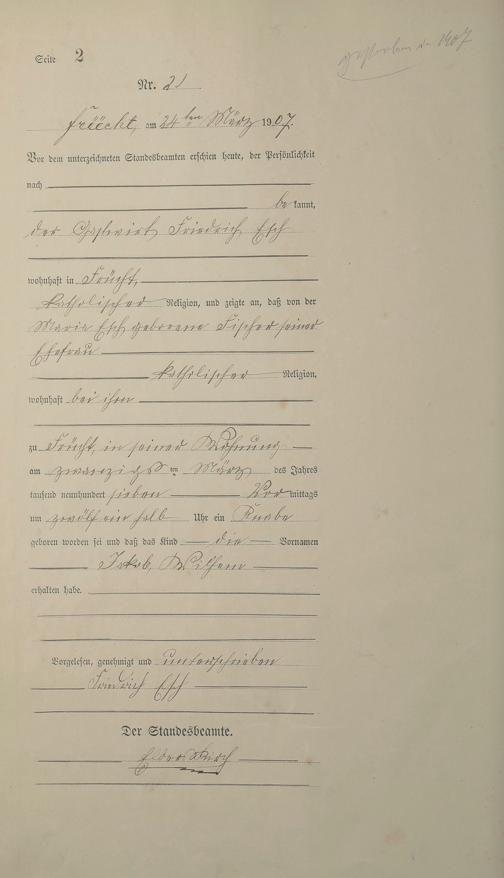 gestorben 1907
Seite 2
Nr. 21
Früecht, am 24 ten März 1907.
Vor dem unterzeichneten Standesbeamten erschien heute, der Persönlichkeit
nach
be kannt,
der Gastwirt Friedrich Esch
wohnhaft in Frücht,
katholischer Religion, und zeigte an, daß von der
Maria Esch geborene Fischer seiner
Ehefrau
katholischer Religion,
wohnhaft bei ihm
zu Frücht, in seiner Wohnung
am zwanzigsten März des Jahres
tausend neunhundert sieben Vor mittags
um zwölf ein halb Uhr ein Knabe
geboren worden sei und daß das Kind die Vornamen
Jakob, Wilhem
erhalten habe.
Vorgelesen, genehmigt und unterschrieben
Friedrich Esch
Der Standesbeamte.